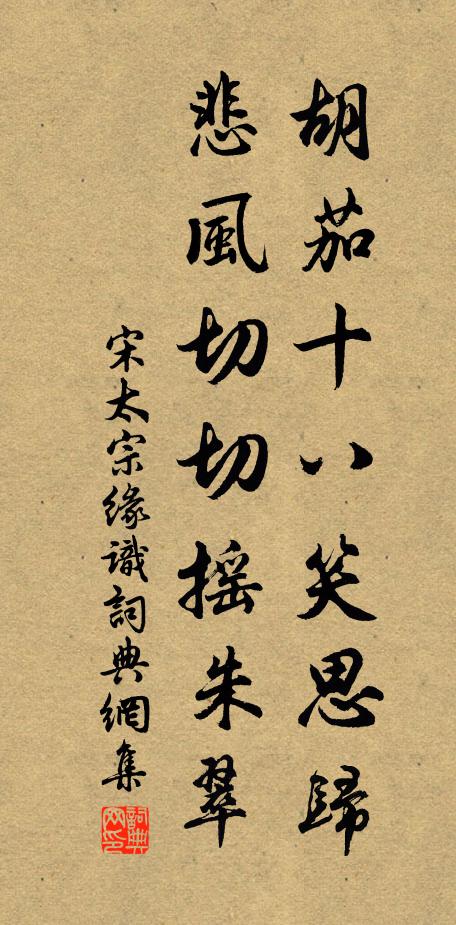 胡茄十八笑思歸
悲風切切搖朱翠
宋太宗緣識詞典網集
詞典網印